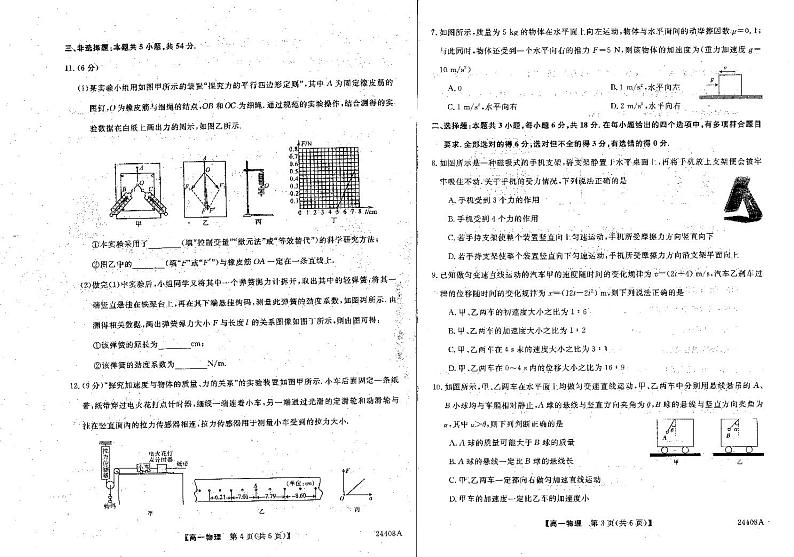 三、非选择题：本题共 5 小题，共 54 分.
11. (6 分)
(1)某实验小组用如图甲所示的装置“探究力的平行四边形定则”，其中 A 为固定橡皮筋的
图钉，O 为橡皮筋与细绳的结点，OB 和 OC 为细绳. 通过规范的实验操作，结合测得的实
验数据在白纸上画出力的图示，如图乙所示.
甲
乙
丙
丁
F/N
0.8
0.7
0.6
0.5
0.4
0.3
0.2
0.1
0 1 2 3 4 5 6 7 8 l/cm
①本实验采用了______(填“控制变量”“微元法”或“等效替代”)的科学研究方法；
②图乙中的______(填“F”或“F′”)与橡皮筋 OA 一定在一条直线上.
(2)做完(1)中实验后，小组同学又将其中一个弹簧测力计拆开，取出其中的轻弹簧；将其一
端竖直悬挂在铁架台上，再在其下端悬挂钩码，测量此弹簧的劲度系数，如图丙所示. 由
测得相关数据，画出弹簧弹力大小 F 与长度 l 的关系图像如图丁所示，则由图可得：
①该弹簧的原长为______cm；
②该弹簧的劲度系数为______N/m.
12. (9 分)“探究加速度与物体的质量、力的关系”的实验装置如图甲所示. 小车后面固定一条纸
带，纸带穿过电火花打点计时器，细线一端连着小车，另一端通过光滑的定滑轮和动滑轮与
挂在竖直面内的拉力传感器相连，拉力传感器用于测量小车受到的拉力大小.
拉力传感器
电火花打
点计时器
纸带
钩码
甲
A
(单位:cm)
6.21 7.01 7.79 8.60
乙
F
O
a
丙
【高一物理 第 4 页(共 6 页)】
24408A
7. 如图所示，质量为 5 kg 的物体在水平面上向左运动，物体与水平面间的动摩擦因数 μ=0.1；
与此同时，物体还受到一个水平向右的推力 F=5 N，则该物体的加速度为(重力加速度 g=
10 m/s²)
A. 0
B. 1 m/s²，水平向左
C. 1 m/s²，水平向右
D. 2 m/s²，水平向右
二、选择题：本题共 3 小题，每小题 6 分，共 18 分. 在每小题给出的四个选项中，有多项符合题目
要求. 全部选对的得 6 分，选对但不全的得 3 分，有选错的得 0 分.
8. 如图所示是一种磁吸式的手机支架，将支架静置于水平桌面上，再将手机放上支架便会被牢
牢吸住不动. 关于手机的受力情况，下列说法正确的是
A. 手机受到 3 个力的作用
B. 手机受到 4 个力的作用
C. 若手持支架使整个装置竖直向上匀速运动，手机所受摩擦力方向竖直向下
D. 若手持支架使整个装置竖直向下匀速运动，手机所受摩擦力方向沿支架平面向上
9. 已知做匀变速直线运动的汽车甲的速度随时间的变化规律为 v=(2t+4) m/s，汽车乙刹车过
程的位移随时间的变化规律为 x=(12t-2t²) m，则下列说法正确的是
A. 甲、乙两车的初速度大小之比为 1∶6
B. 甲、乙两车的加速度大小之比为 1∶2
C. 甲、乙两车在 4 s 末的速度大小之比为 3∶1
D. 甲、乙两车在 0～4 s 内的位移大小之比为 16∶9
10. 如图所示，甲、乙两车在水平面上均做匀变速直线运动，甲、乙两车中分别用悬线悬吊的 A、
B 小球均与车厢相对静止，A 球的悬线与竖直方向夹角为 θ，B 球的悬线与竖直方向夹角为
α，其中 α>θ，则下列判断正确的是
A. A 球的质量可能大于 B 球的质量
B. A 球的悬线一定比 B 球的悬线长
C. 甲、乙两车一定都向右做匀加速直线运动
D. 甲车的加速度一定比乙车的加速度小
甲
乙
【高一物理 第 3 页(共 6 页)】
24408A